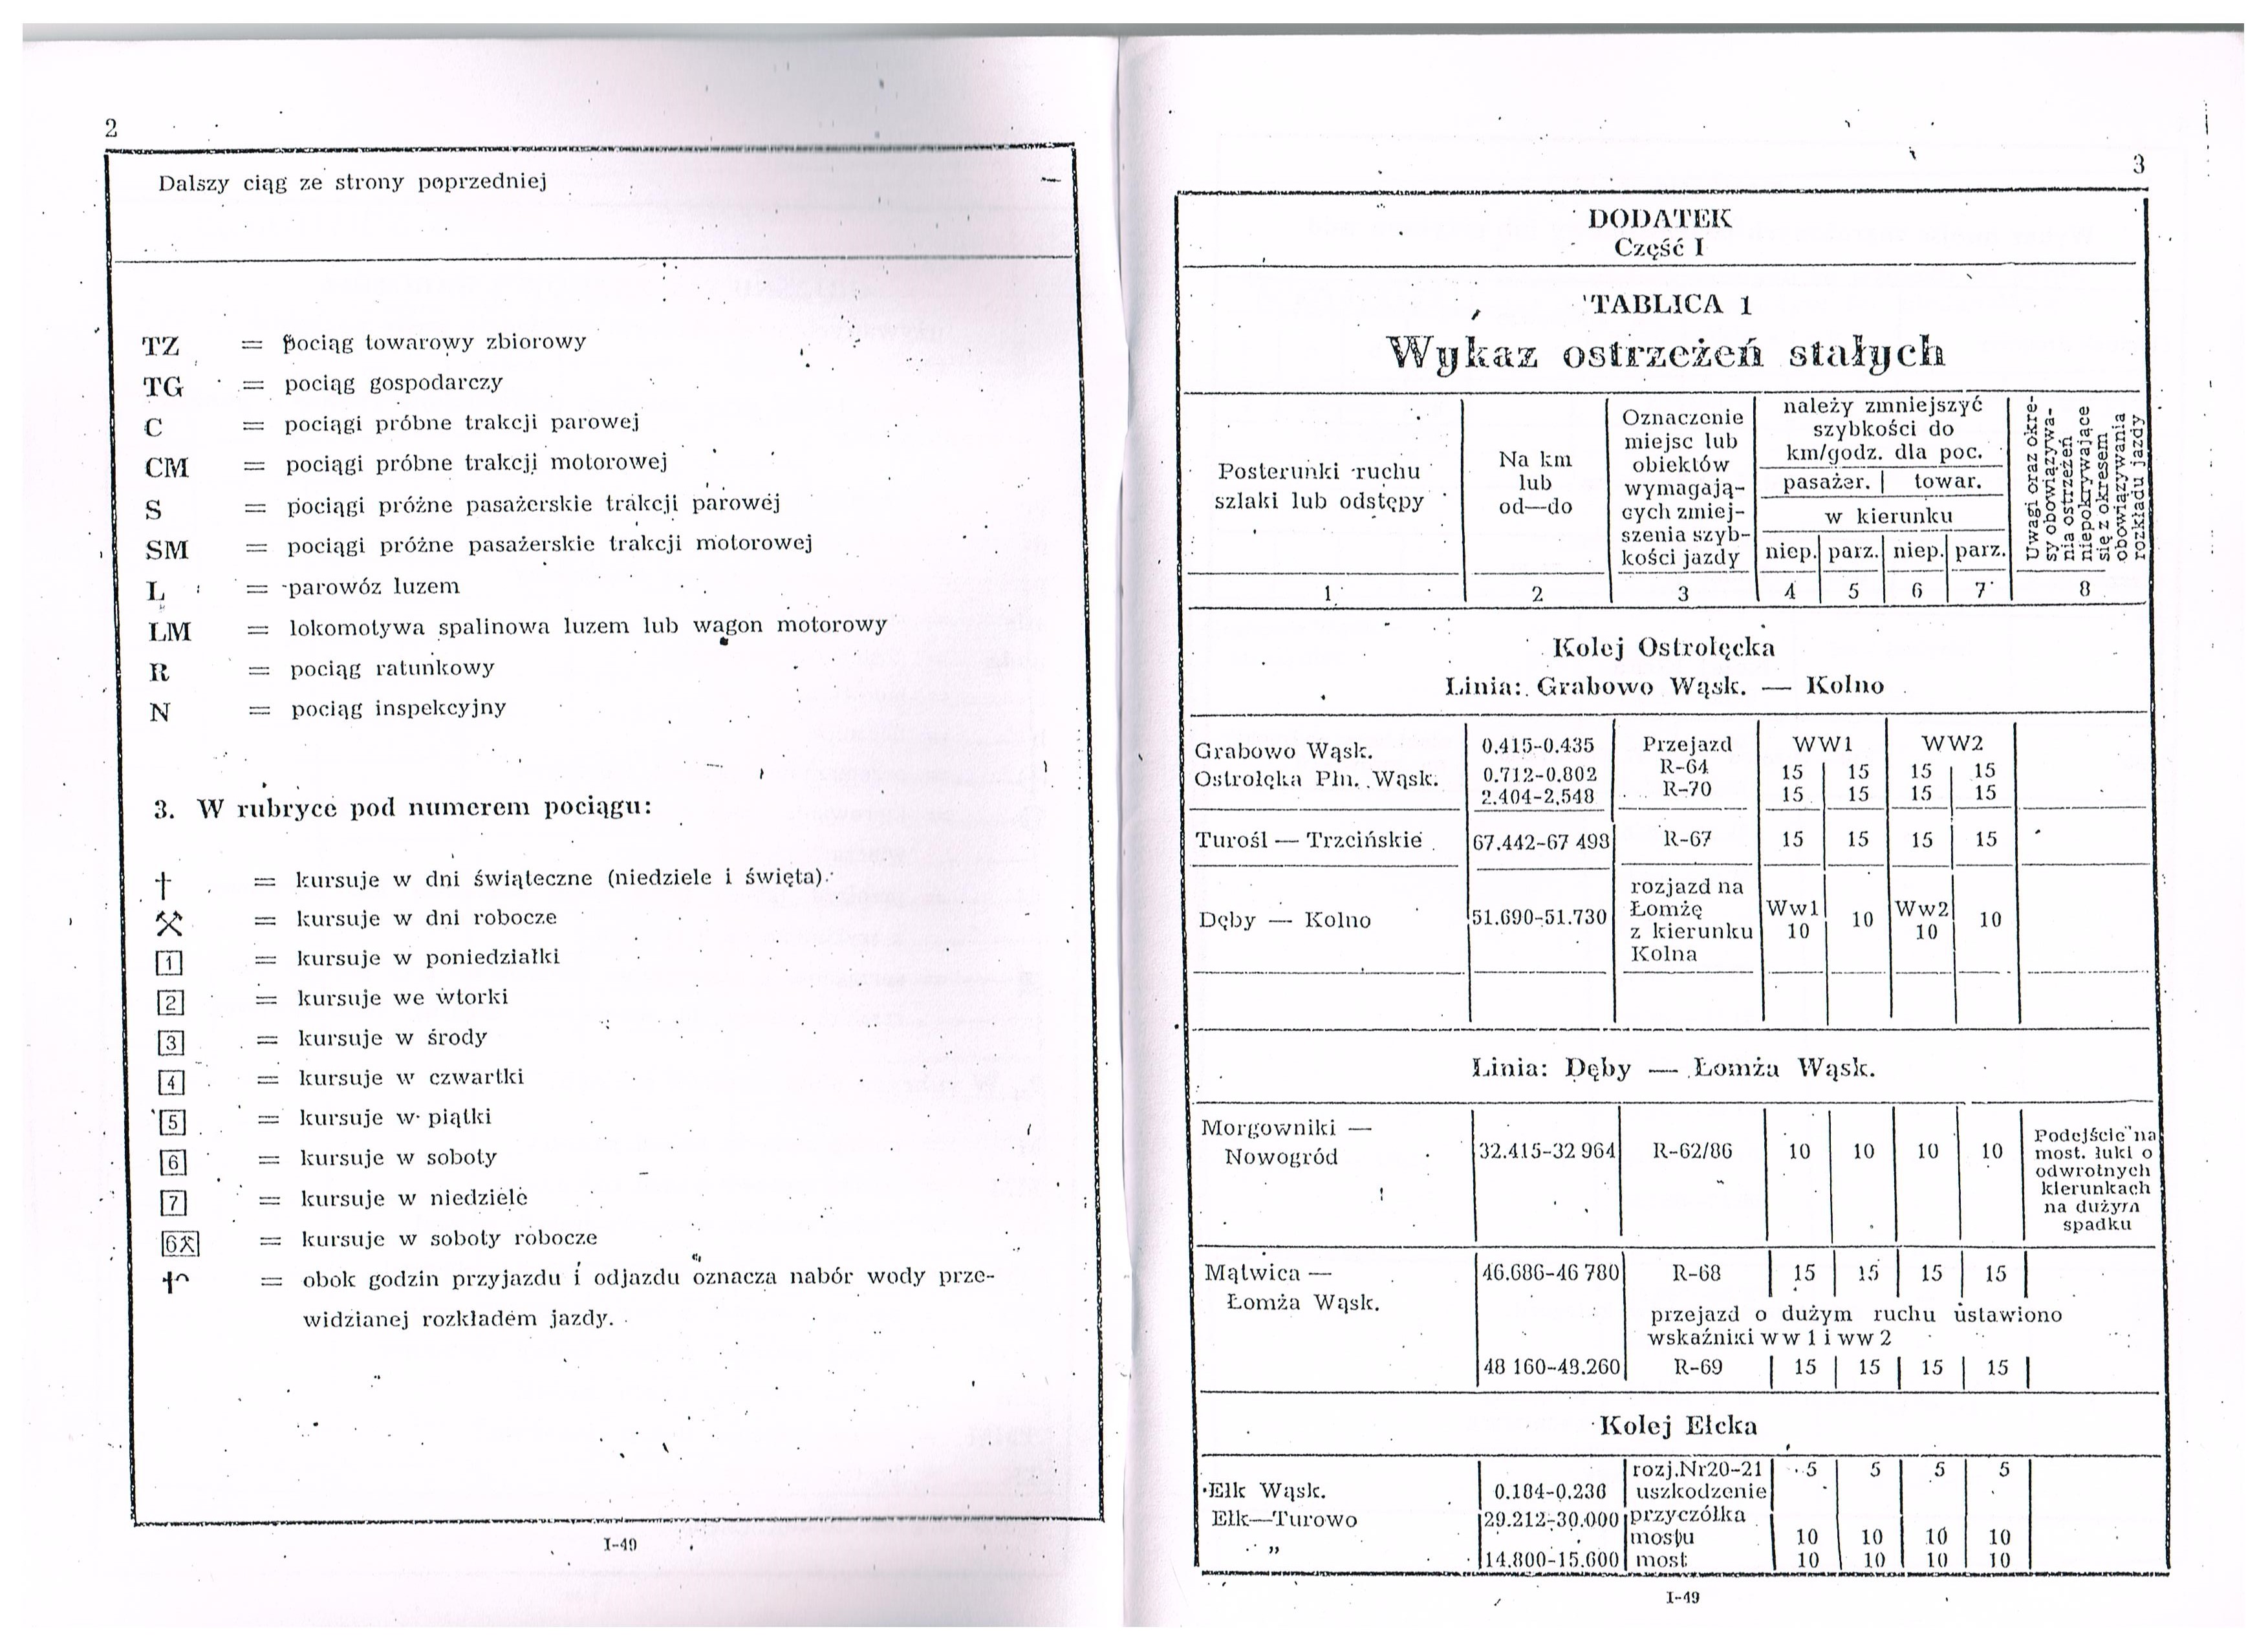 2
Dalszy ciąg ze strony poprzedniej
TZ = pociąg towarowy zbiorowy
TG = pociąg gospodarczy
C = pociągi próbne trakcji parowej
CM = pociągi próbne trakcji motorowej
S = pociągi próżne pasażerskie trakcji parowej
SM = pociągi próżne pasażerskie trakcji motorowej
L = parowóz luzem
LM = lokomotywa spalinowa luzem lub wagon motorowy
R = pociąg ratunkowy
N = pociąg inspekcyjny
3. W rubryce pod numerem pociągu:
† = kursuje w dni świąteczne (niedziele i święta)
⚒ = kursuje w dni robocze
1 = kursuje w poniedziałki
2 = kursuje we wtorki
3 = kursuje w środy
4 = kursuje w czwartki
5 = kursuje w piątki
6 = kursuje w soboty
7 = kursuje w niedziele
6⚒ = kursuje w soboty robocze
= obok godzin przyjazdu i odjazdu oznacza nabór wody prze-
widzianej rozkładem jazdy.
I-49
3
DODATEK
Część I
TABLICA 1
Wykaz ostrzeżeń stałych
Posterunki ruchu
szlaki lub odstępy
Na km
lub
od—do
Oznaczenie
miejsc lub
obiektów
wymagają-
cych zmiej-
szenia szyb-
kości jazdy
należy zmniejszyć
szybkości do
km/godz. dla poc.
pasażer. towar.
w kierunku
niep. parz. niep. parz.
Uwagi oraz okre-
sy obowiązywa-
nia ostrzeżeń
niepokrywające
się z okresem
obowiązywania
rozkładu jazdy
1 2 3 4 5 6 7 8
Kolej Ostrołęcka
Linia: Grabowo Wąsk. — Kolno
Grabowo Wąsk. 0.415-0.435 Przejazd WW1 WW2
Ostrołęka Płn. Wąsk. 0.712-0.802 R-64 15 15 15 15
2.404-2.548 R-70 15 15 15 15
Turośl — Trzcińskie 67.442-67 498 R-67 15 15 15 15
Dęby — Kolno 51.690-51.730
rozjazd na
Łomżę
z kierunku
Kolna
Ww1 10 Ww2 10
10 10
Linia: Dęby — Łomża Wąsk.
Morgowniki —
Nowogród
32.415-32 964 R-62/86 10 10 10 10
Podejście na
most. łuki o
odwrotnych
kierunkach
na dużym
spadku
Mątwica —
Łomża Wąsk.
46.686-46 780 R-68 15 15 15 15
przejazd o dużym ruchu ustawiono
wskaźniki w w 1 i ww 2
48 160-48.260 R-69 15 15 15 15
Kolej Ełcka
Ełk Wąsk. 0.184-0.236 rozj.Nr20-21 5 5 5 5
Ełk—Turowo 29.212-30.000
uszkodzenie
przyczółka
mostu 10 10 10 10
„ 14.800-15.600 most 10 10 10 10
I-49